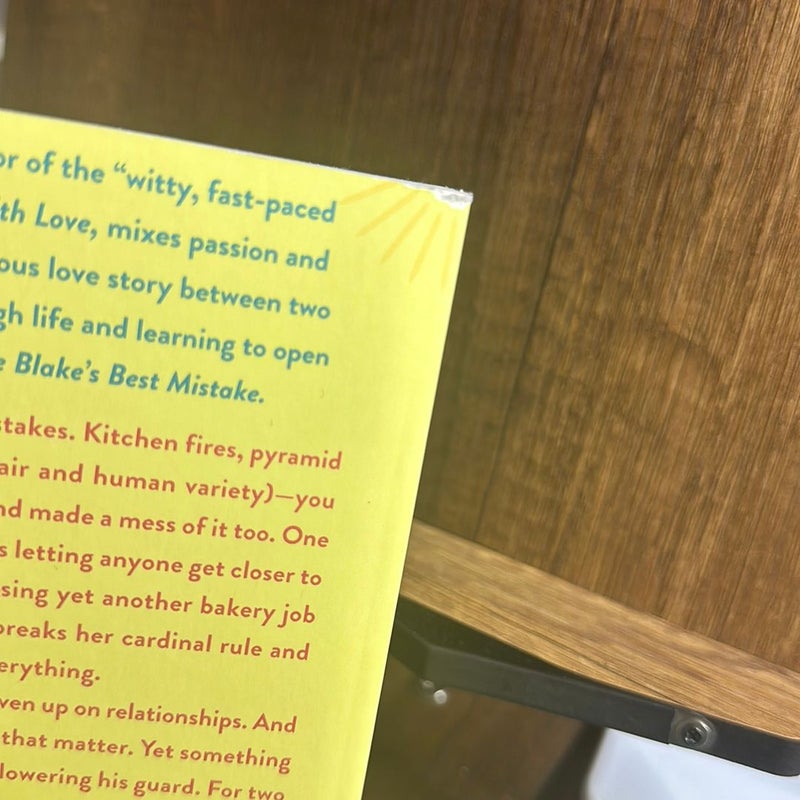 of the “witty, fast-paced
Love, mixes passion and
love story between two
life and learning to open
Blake’s Best Mistake.
Kitchen fires, pyramid
and human variety)—you
made a mess of it too. One
letting anyone get closer to
yet another bakery job
breaks her cardinal rule and
up on relationships. And
that matter. Yet something
lowering his guard. For two